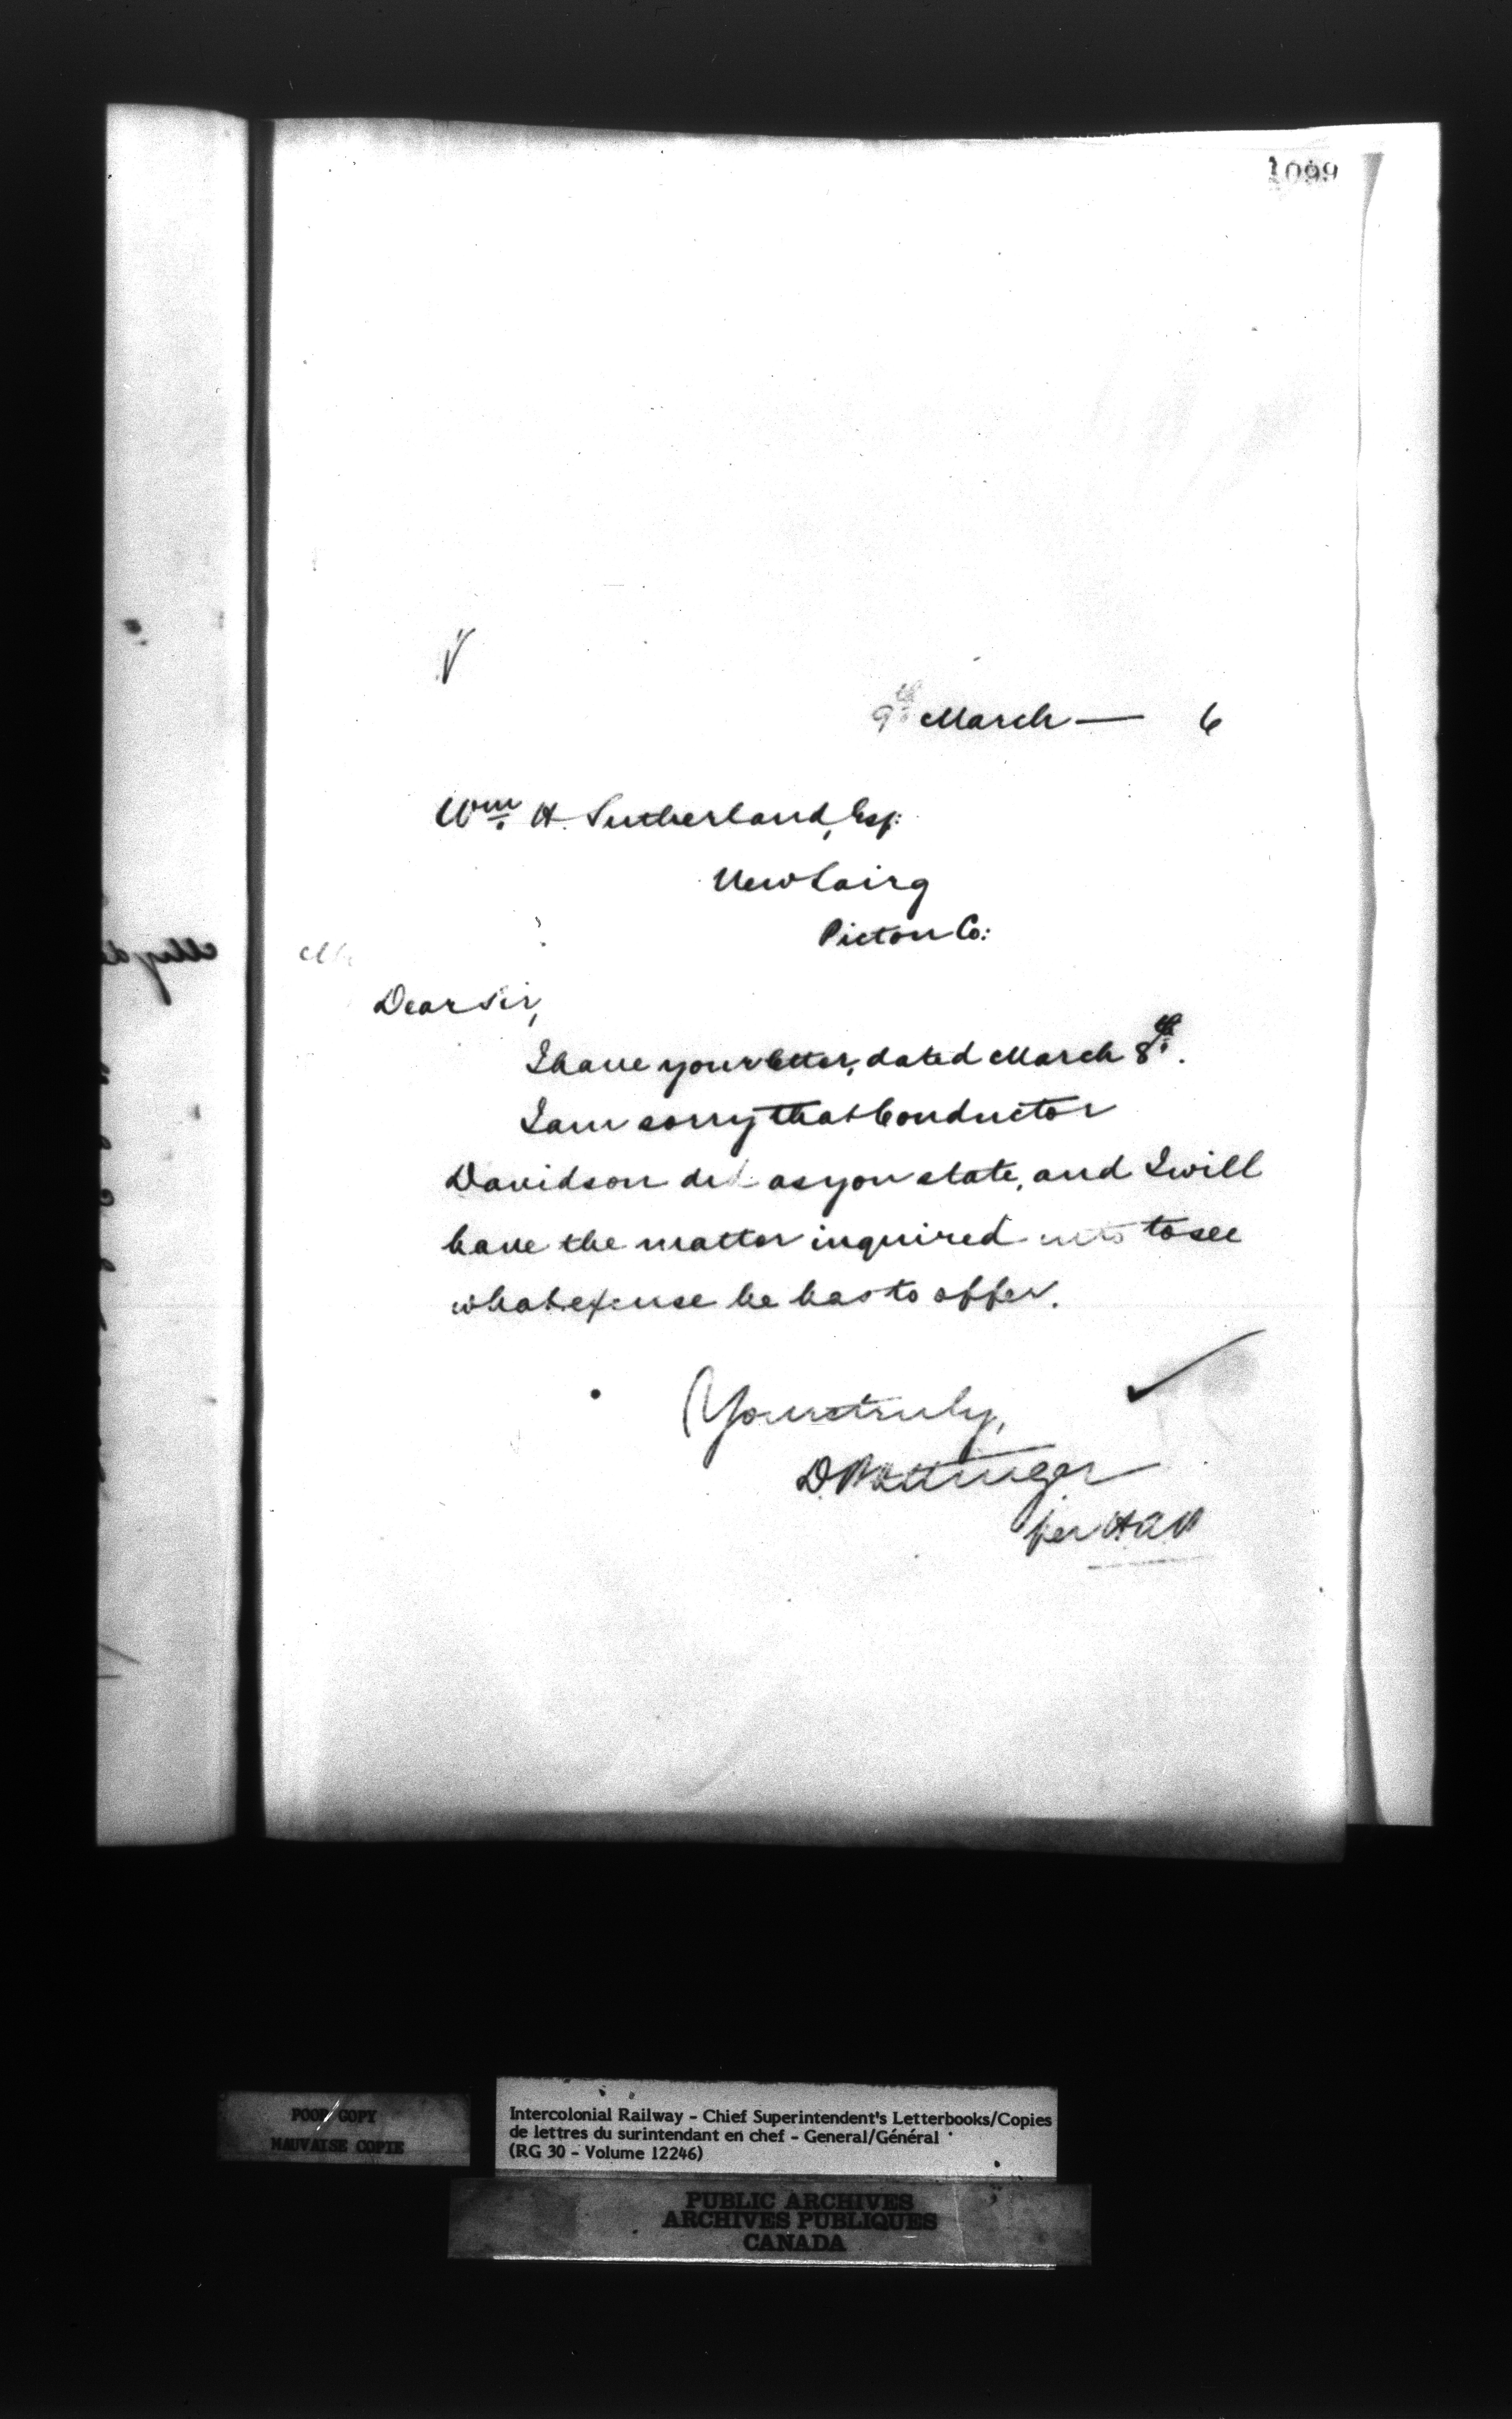 1099
9th March — 6
Wm. H. Sutherland, Esq:
New Lairg
Pictou Co:
Dear Sir,
I have your letter, dated March 8th.
I am sorry that Conductor
Davidson did as you state, and I will
have the matter inquired into to see
what excuse he has to offer.
Yours truly,
D. Pottinger
per HAP
POOR COPY
MAUVAISE COPIE
Intercolonial Railway - Chief Superintendent's Letterbooks/Copies
de lettres du surintendant en chef - General/Général
(RG 30 - Volume 12246)
PUBLIC ARCHIVES
ARCHIVES PUBLIQUES
CANADA